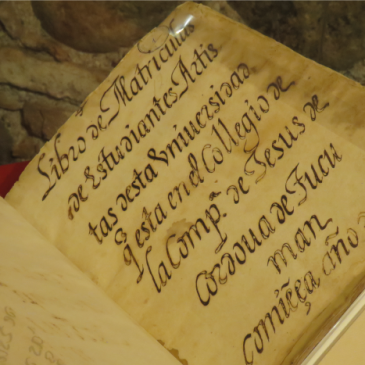 Libro de Matriculas
de Estudiantes Artis
tas desta Vniuersidad
q̃ esta en el Collegio de
la Comp.ª de Jesus de
Cordoua de Tucu
man
comiẽça año